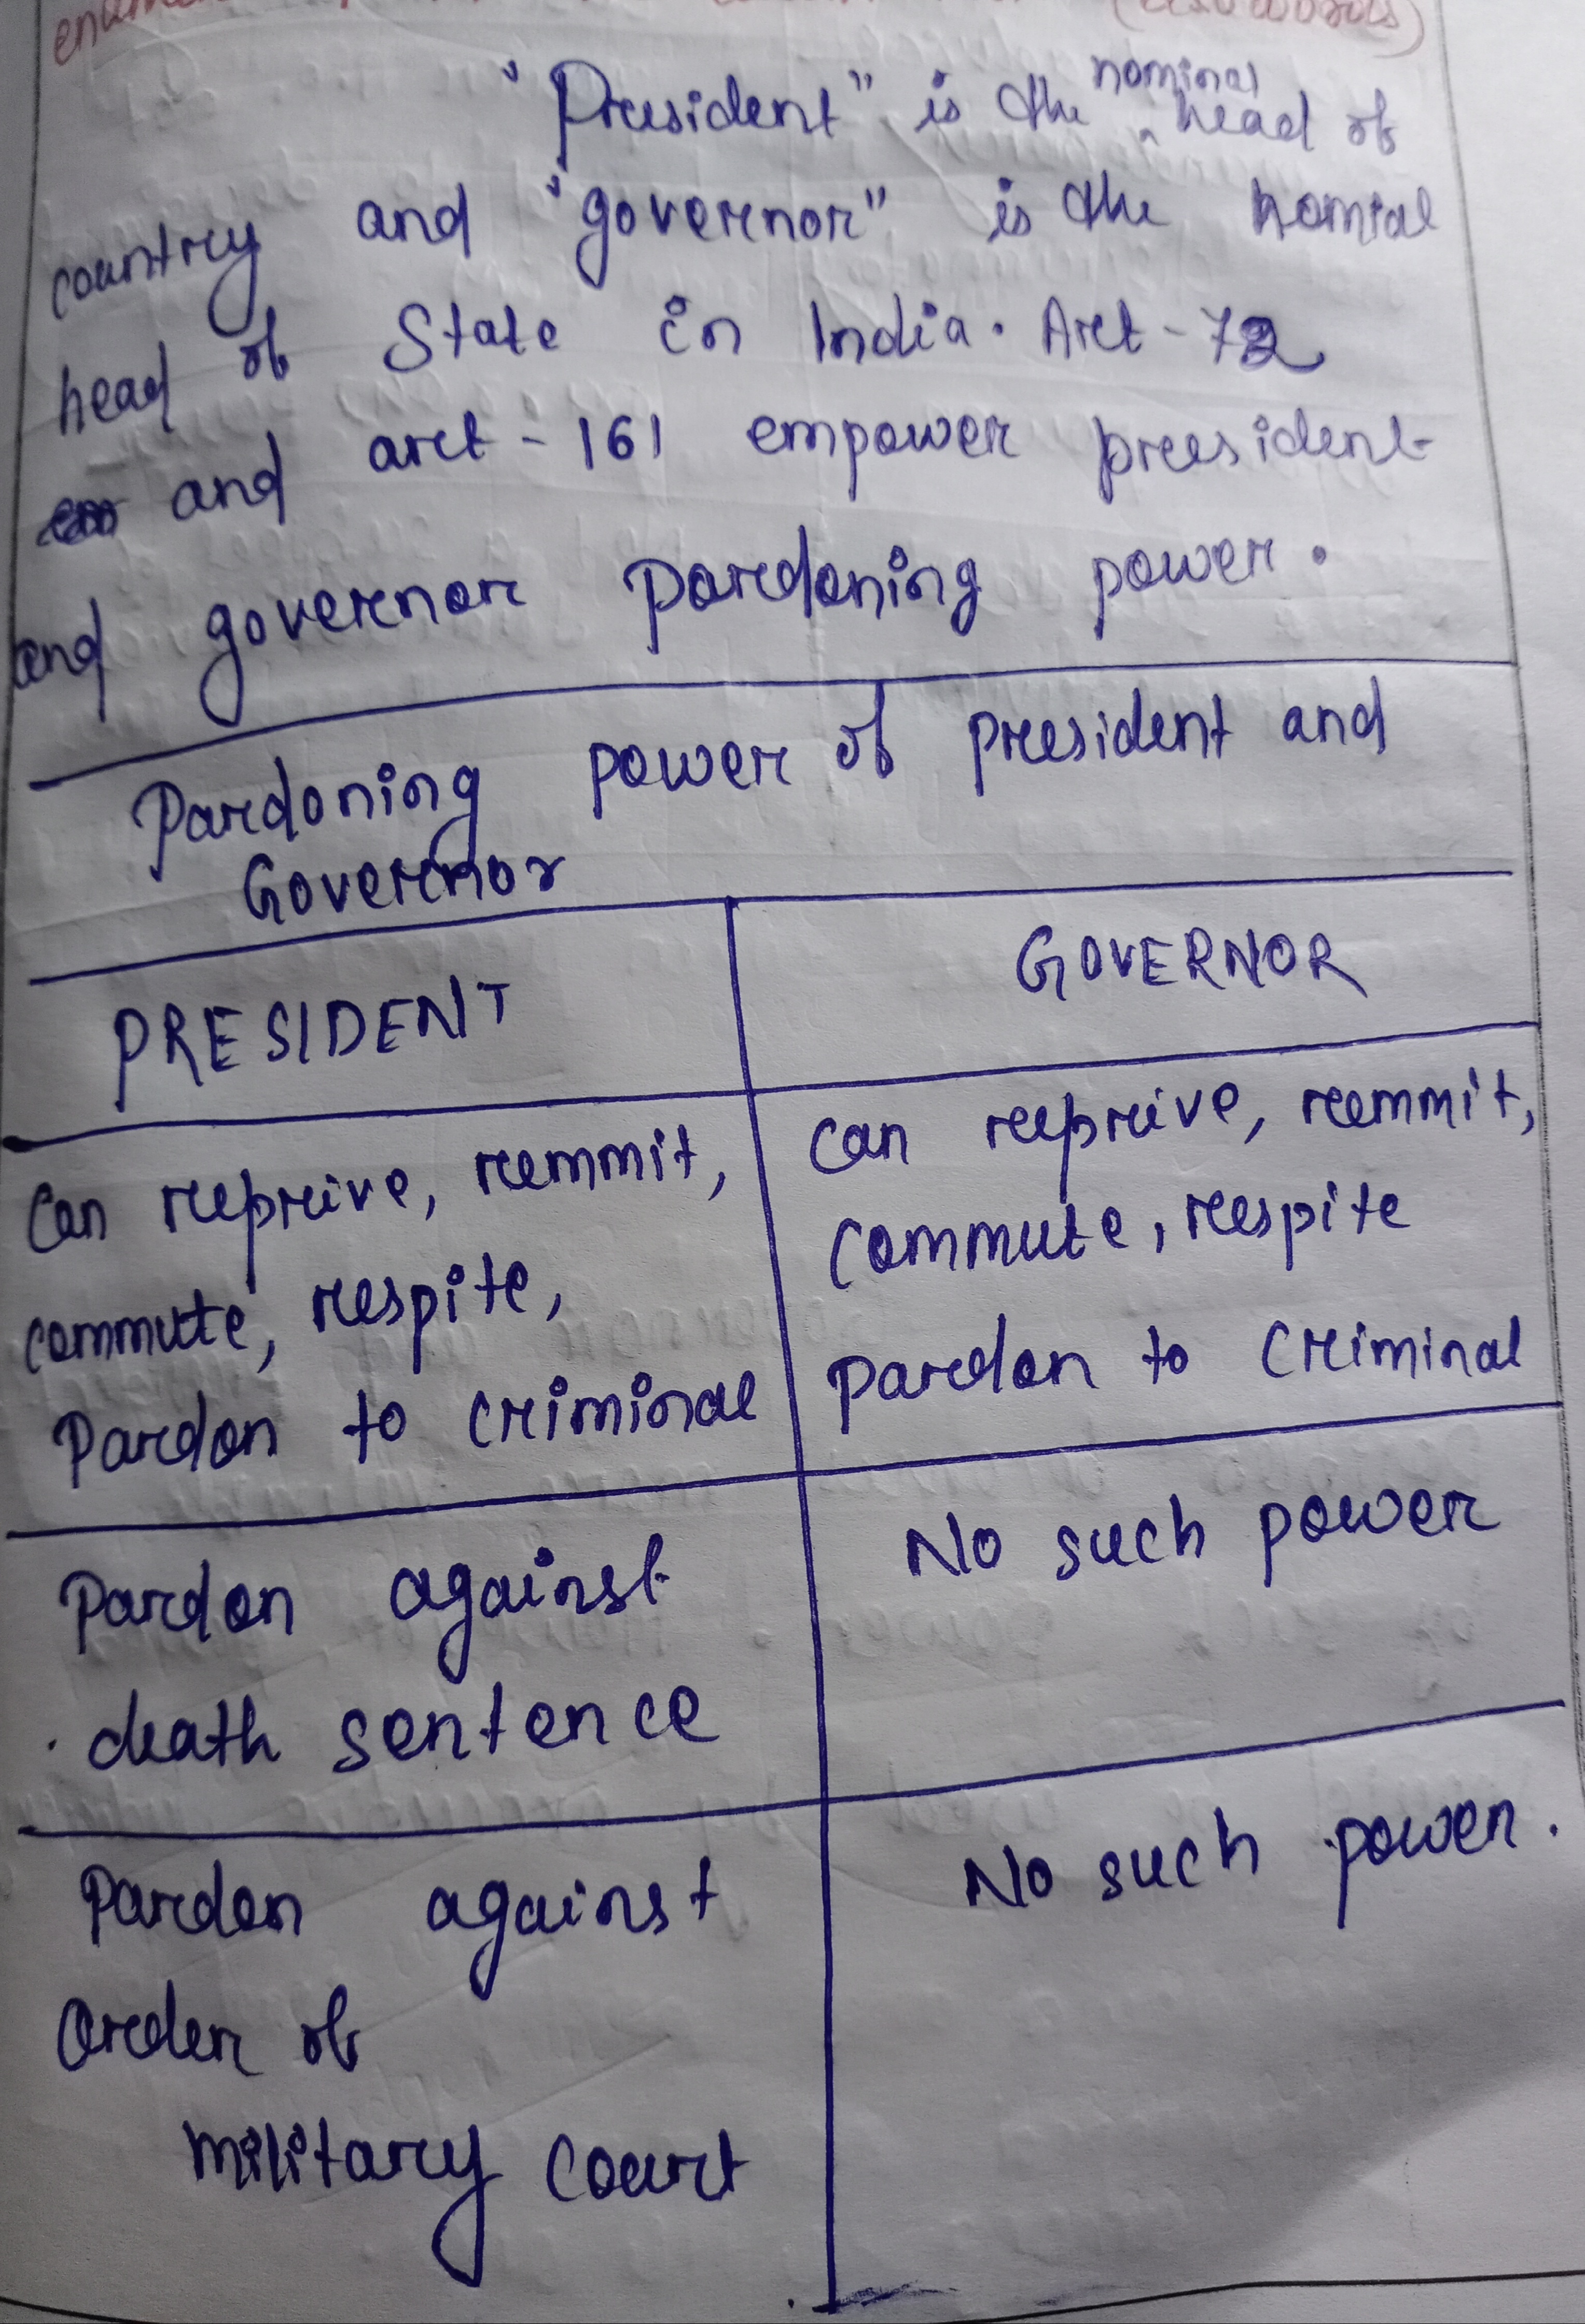 "President" is the nominal head of
country and "governor" is the
head of State in India. Art-72
and art-161 empower president
and governor pardoning power.
Pardoning power of president and
Governor
PRESIDENT
GOVERNOR
Can repreive, remmit,
commute, respite,
Pardon to criminal
Can repreive, remmit,
commute, respite
pardon to criminal
Pardon against
death sentence
No such power
Pardon against
order of
military court
No such power.